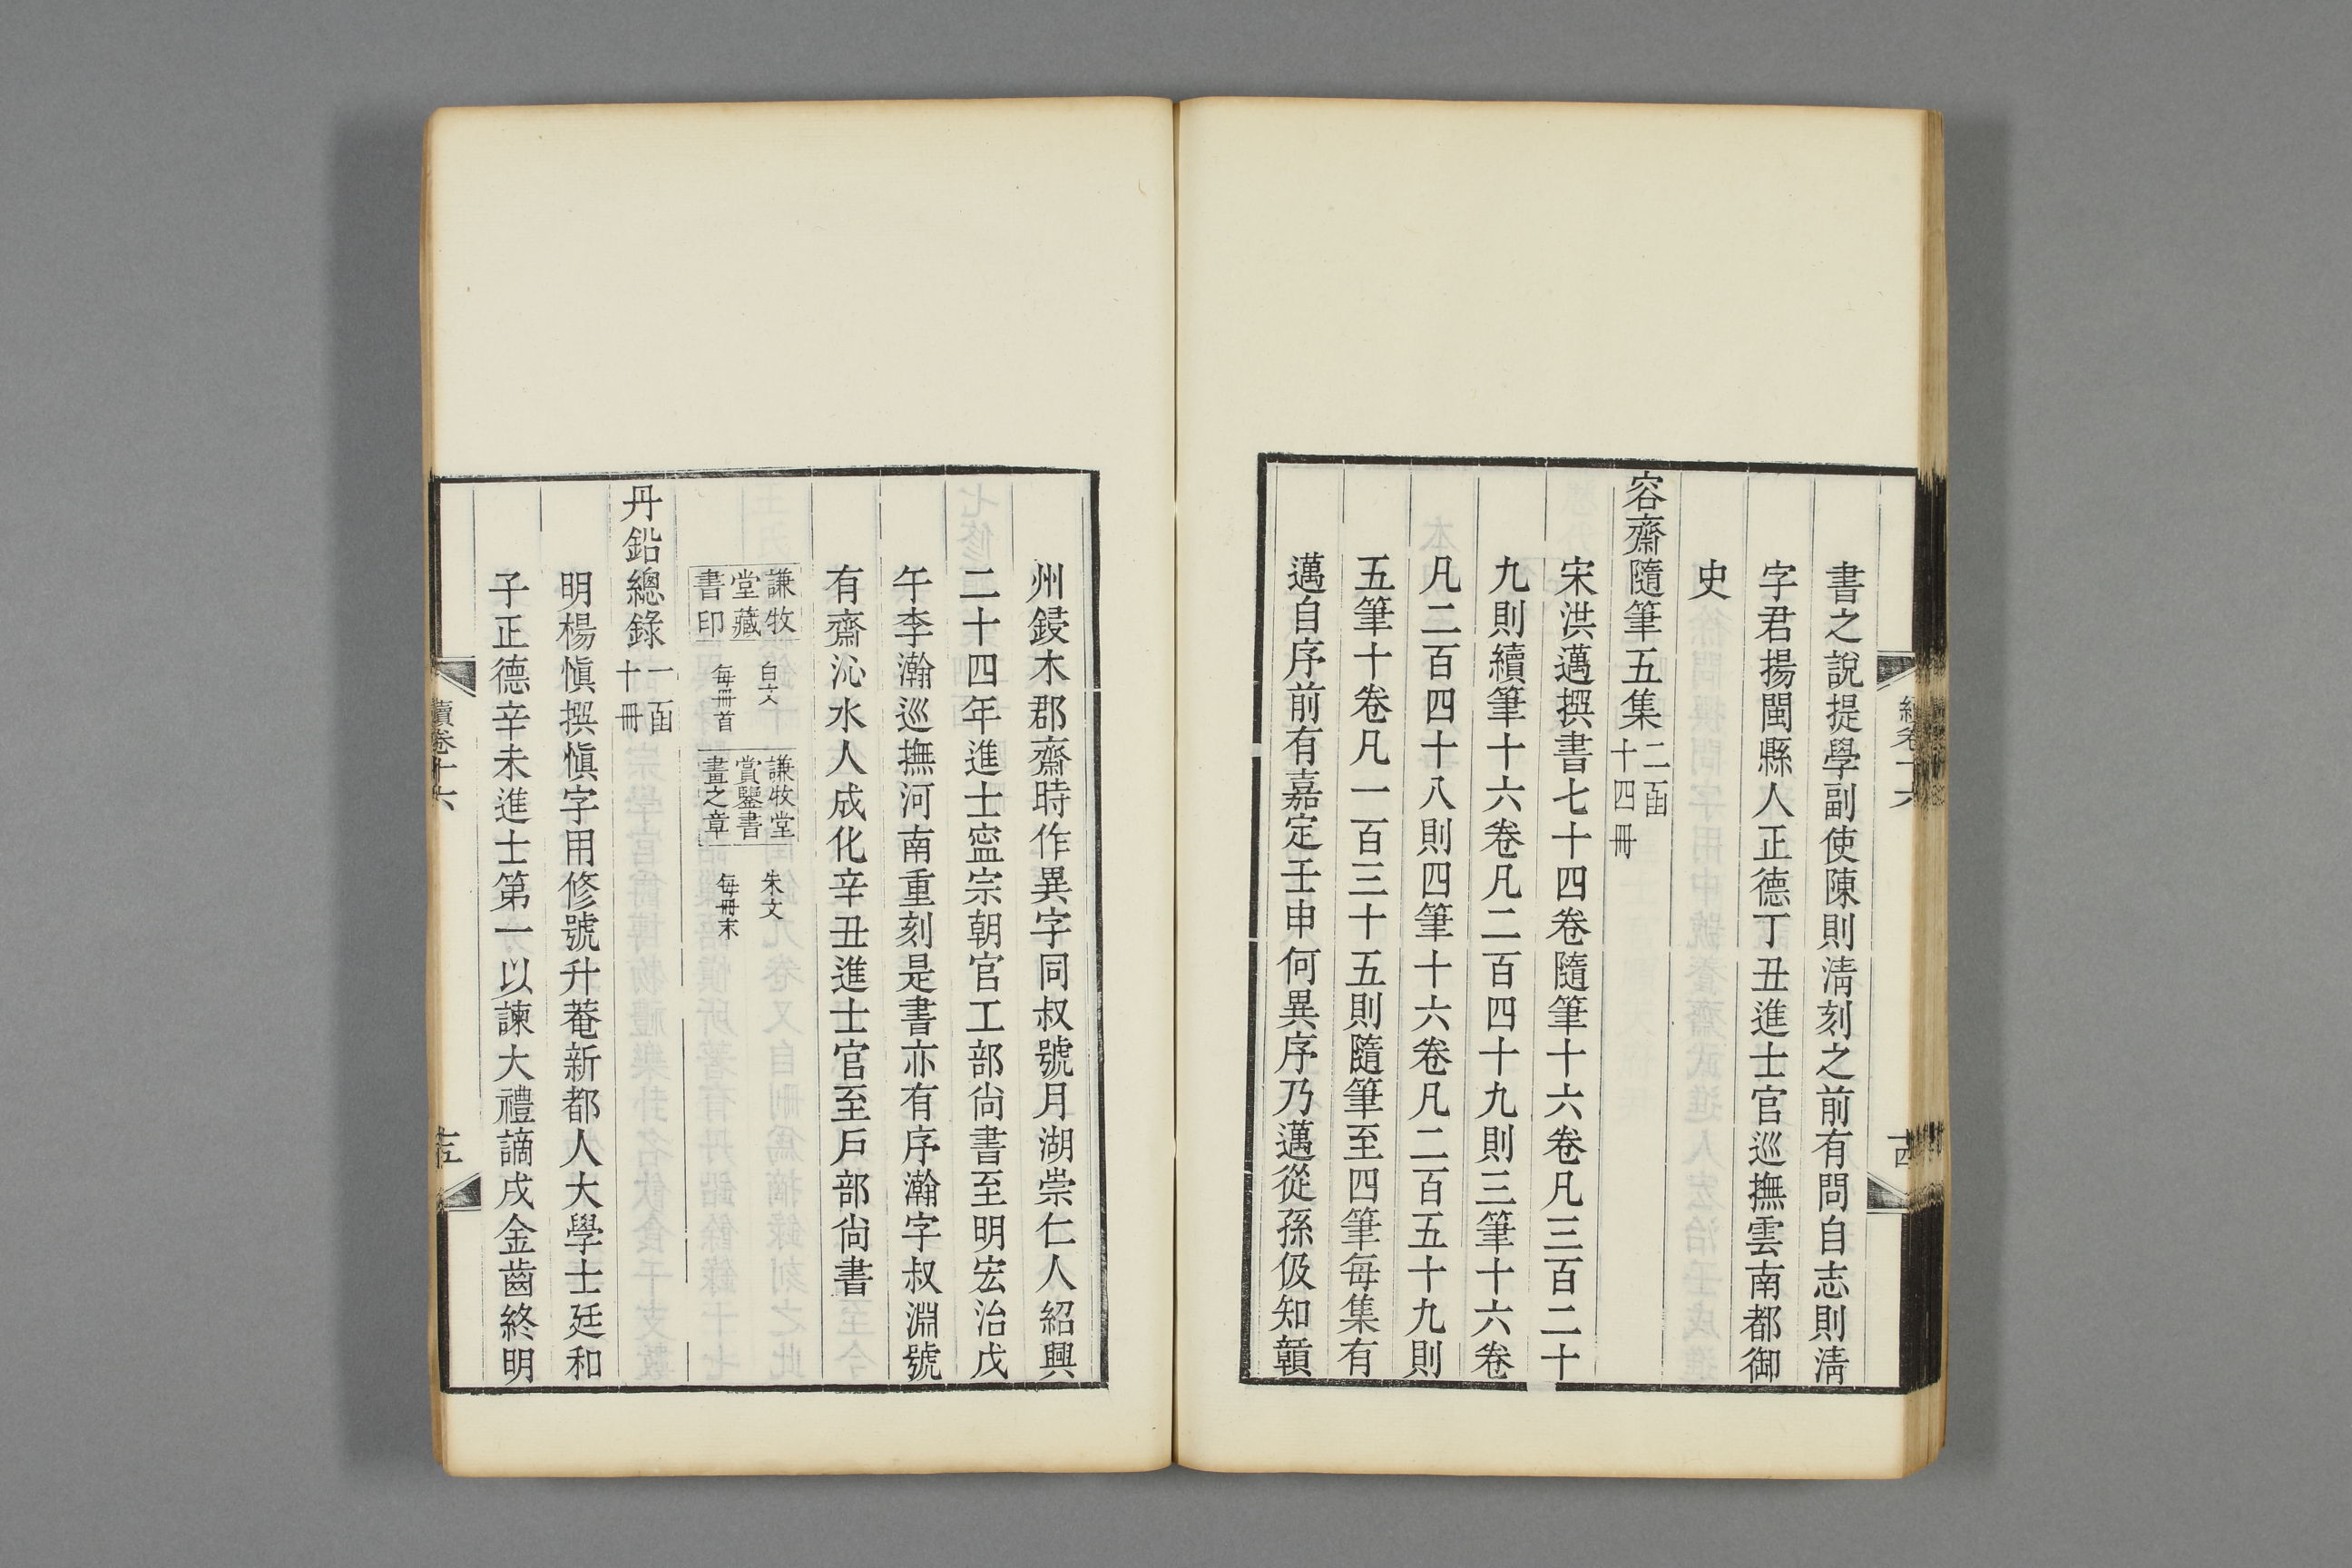 書之說提學副使陳則淸刻之前有問自志則淸
字君揚閩縣人正德丁丑進士官巡撫雲南都御
史
容齋隨筆五集二函十四冊
宋洪邁撰書七十四卷隨筆十六卷凡三百二十
九則續筆十六卷凡二百四十九則三筆十六卷
凡二百四十八則四筆十六卷凡二百五十九則
五筆十卷凡一百三十五則隨筆至四筆每集有
邁自序前有嘉定壬申何異序乃邁從孫伋知贛
州鋟木郡齋時作異字同叔號月湖崇仁人紹興
二十四年進士寧宗朝官工部尙書至明宏治戊
午李瀚巡撫河南重刻是書亦有序瀚字叔淵號
有齋沁水人成化辛丑進士官至戶部尙書
謙牧堂藏書印 白文每冊首 謙牧堂賞鑒書畫之章 朱文每冊末
丹鉛總錄一函十冊
明楊愼撰愼字用修號升菴新都人大學士廷和
子正德辛未進士第一以諫大禮謫戍金齒終明
續卷十六
十五